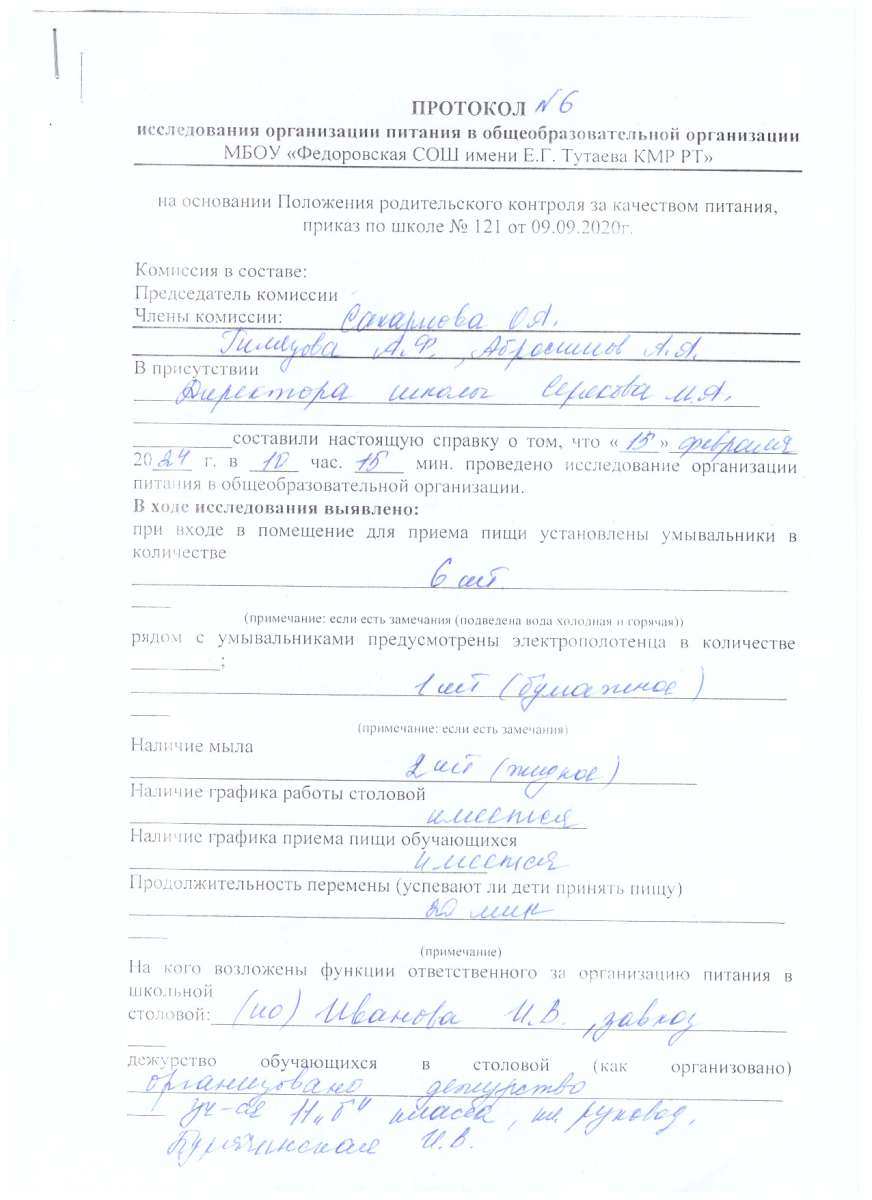 ПРОТОКОЛ №6
исследования организации питания в общеобразовательной организации
МБОУ «Федоровская СОШ имени Е.Г. Тутаева КМР РТ»
на основании Положения родительского контроля за качеством питания,
приказ по школе № 121 от 09.09.2020г.
Комиссия в составе:
Председатель комиссии
Члены комиссии: О.А.
А.Ф., Абросимов А.А.
В присутствии
Директора школы М.А.
составили настоящую справку о том, что «15» февраля
2024 г. в 10 час. 15 мин. проведено исследование организации
питания в общеобразовательной организации.
В ходе исследования выявлено:
при входе в помещение для приема пищи установлены умывальники в
количестве
6 шт
(примечание: если есть замечания (подведена вода холодная и горячая))
рядом с умывальниками предусмотрены электрополотенца в количестве
;
1 шт (бумажное)
(примечание: если есть замечания)
Наличие мыла
2 шт (жидкое)
Наличие графика работы столовой
имеется
Наличие графика приема пищи обучающихся
имеется
Продолжительность перемены (успевают ли дети принять пищу)
20 мин
(примечание)
На кого возложены функции ответственного за организацию питания в
школьной
столовой: (ио) Иванова И.В., завхоз
дежурство обучающихся в столовой (как организовано)
организовано дежурство
уч-ся класса, кл. руковод.
И.В.